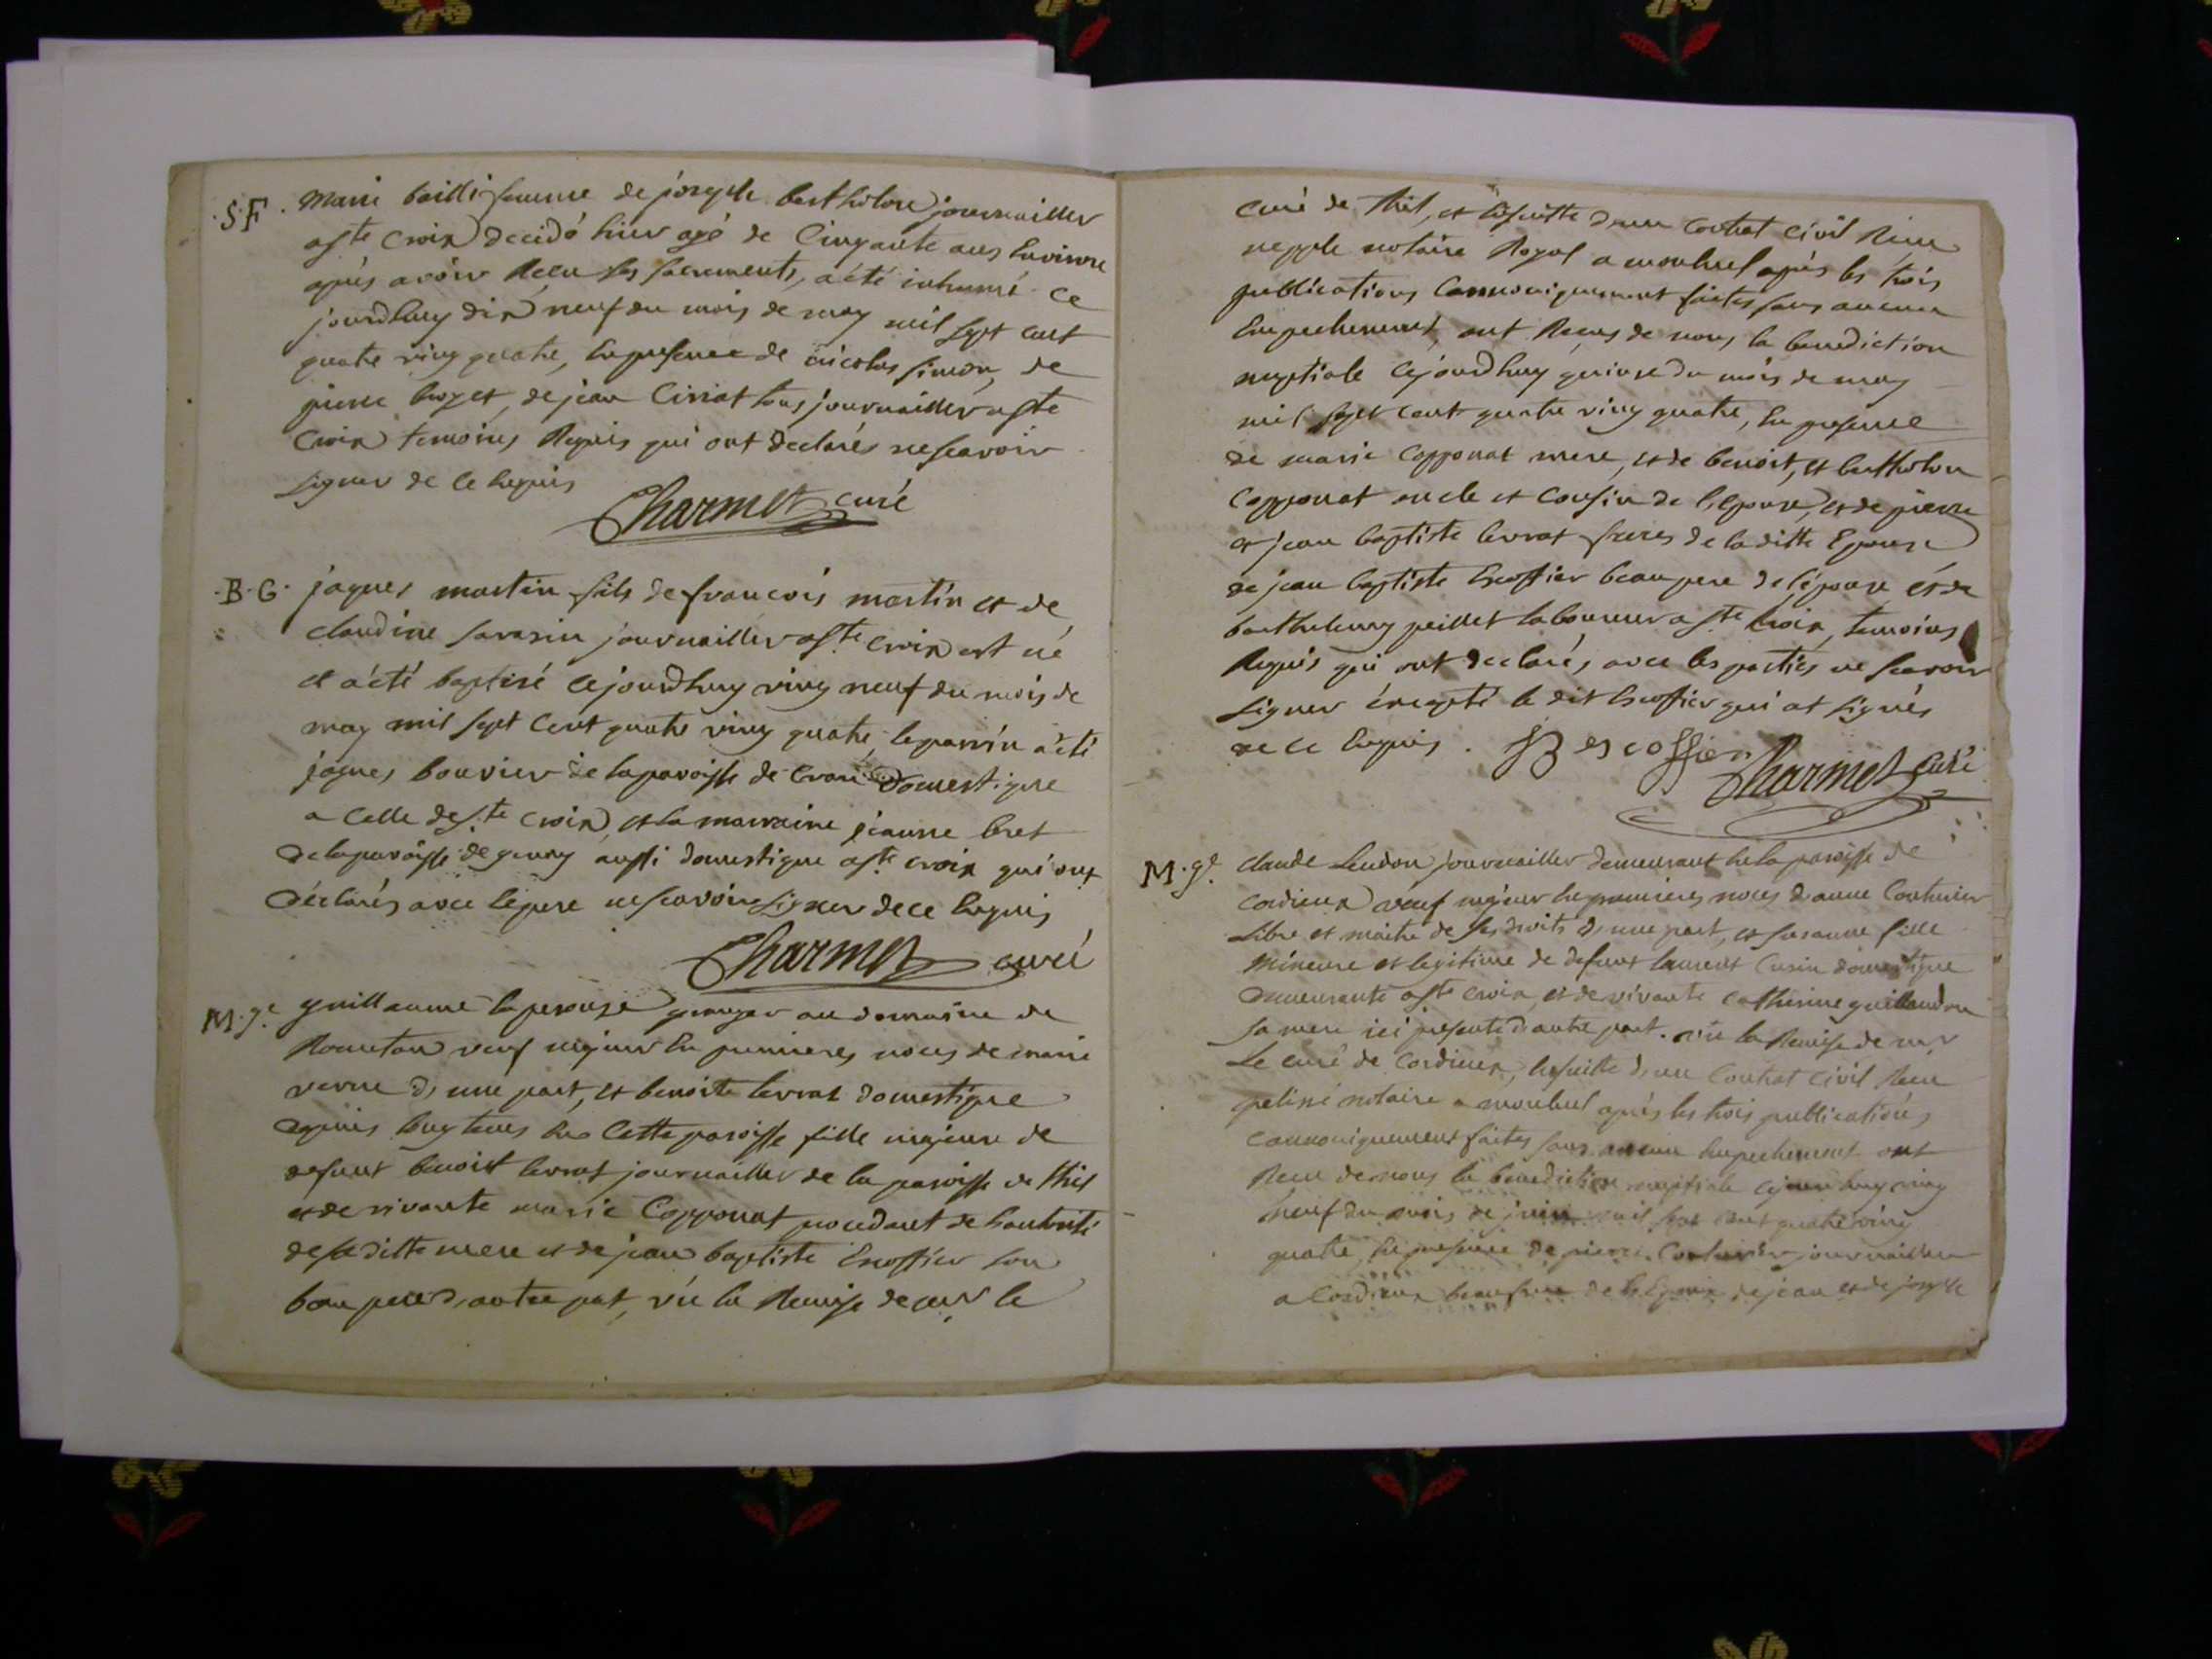 S.F. Marie bailli femme de joseph berthelon journaillier
a ste Croix decidé hier agé de Cinqante ans Environ
après avoir Recu les sacrements, a été inhumé ce
jourdhuy dix neuf du mois de may mil sept cent
quatre ving quatre, En presence de nicolas simon, de
pierre huget, de jean Cirriat tous journaillier a ste
Croix temoins Requis qui ont declarés ne scavoir
signer de ce Enquis
Charmet curé
B.G. jaques martin fils de francois martin et de
claudine sarasin journaillier a ste croix est né
et a été baptisé cejourdhuy ving neuf du mois de
may mil sept Cent quatre ving quatre, le parrin a été
jaques bouvier de la paroisse de Domestique
a Celle de ste Croix, et la marraine jeanne bret
de la paroisse de aussi domestique a ste croix qui ont
déclarés avec le pere ne scavoir signer de ce Enquis
Charmet curé
M.ge guillaume laperouze granger au domaine de
veuf majeur En premieres noces de marie
verne d'une part, et benoite levrat domestique
depuis longtems En Cette paroisse fille majeure de
defunt benoist levrat journaillier de la paroisse de thil
et de vivante marie Copponat procedant de Lautorité
de sa ditte mere et de jean baptiste Escoffier son
beau pere d'autre part, vu la Remise de mr le
curé de thil, et Ensuitte d'un Contrat Civil Recu
nepple notaire Royal a montluel après les trois
publications Cannoniquement faites sans aucun
Empechement, ont Reçus de nous la benediction
nuptiale Cejourdhuy quinze du mois de may
mil sept cent quatre ving quatre, En presence
de marie Copponat mere, et de benoist, et berthelon
Copponat oncle et Cousin de l'Epouse, et de pierre
et jean baptiste levrat freres de laditte Epouse
de jean baptiste Escoffier beau pere de l'épouse et de
barthelemy peillet laboureur a ste Croix, temoins
Requis qui ont declarés avec les parties ne scavoir
signer éxcepté le dit Escoffier qui at signés
de ce Enquis. JB escoffier
Charmet Curé
M.ge claude Lindon journaillier demeurant En la paroisse de
Cordieux veuf majeur En premieres noces d'anne Couturier
Libre et maitre de ses droits d'une part, et susanne fille
Mineure et legitime de defunt laurent Cusin domestique
demeurante a ste croix, et de vivante catherine guillaudon
sa mere ici presente d'autre part. vu la Remise de mr
Le curé de Cordieux, Ensuitte d'un Contrat civil Recu
notaire a montluel après les trois publications
Cannoniquement faites sans aucun Empechement ont
Recu de nous la benediction nuptiale cejourdhuy ving
neuf du mois de juin mil sept cent quatre ving
quatre, En presence de pierre Couturier journaillier
a Cordieux beaufrere de l'Epoux, de jean et de joseph